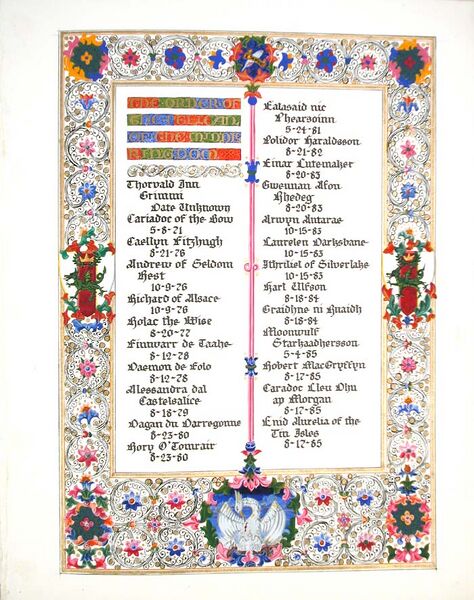 THE ORDER OF
THE PELICAN
OF THE MIDDLE
KINGDOM
Thorvald Inn
Grimmi
Date Unknown
Cariadoc of the Bow
5-8-71
Caellyn Fitzhugh
8-21-76
Andrew of Seldom
Rest
10-9-76
Richard of Alsace
10-9-76
Rolac the Wise
8-20-77
Finnvarr de Taahe
8-12-78
Daemon de Folo
8-12-78
Alessandra dal
Castelsalice
8-18-79
Dagan du Darregonne
8-23-80
Rory O'Tomrair
8-23-80
Ealasaid nic
Phearsoinn
5-24-81
Polidor Haraldsson
8-21-82
Einar Lutemaker
8-20-83
Gwennan Afon
Rhedeg
8-20-83
Arwyn Antarae
10-15-83
Laurelen Darksbane
10-15-83
Ithriliel of Silverlake
10-15-83
Karl Ulfson
8-18-84
Graidhne ni Ruaidh
8-18-84
Moonwulf
Starkaadhersson
5-4-85
Robert MacGryffyn
8-17-85
Caradoc Lleu Dhu
ap Morgan
8-17-85
Enid Aurelia of the
Tin Isles
8-17-85